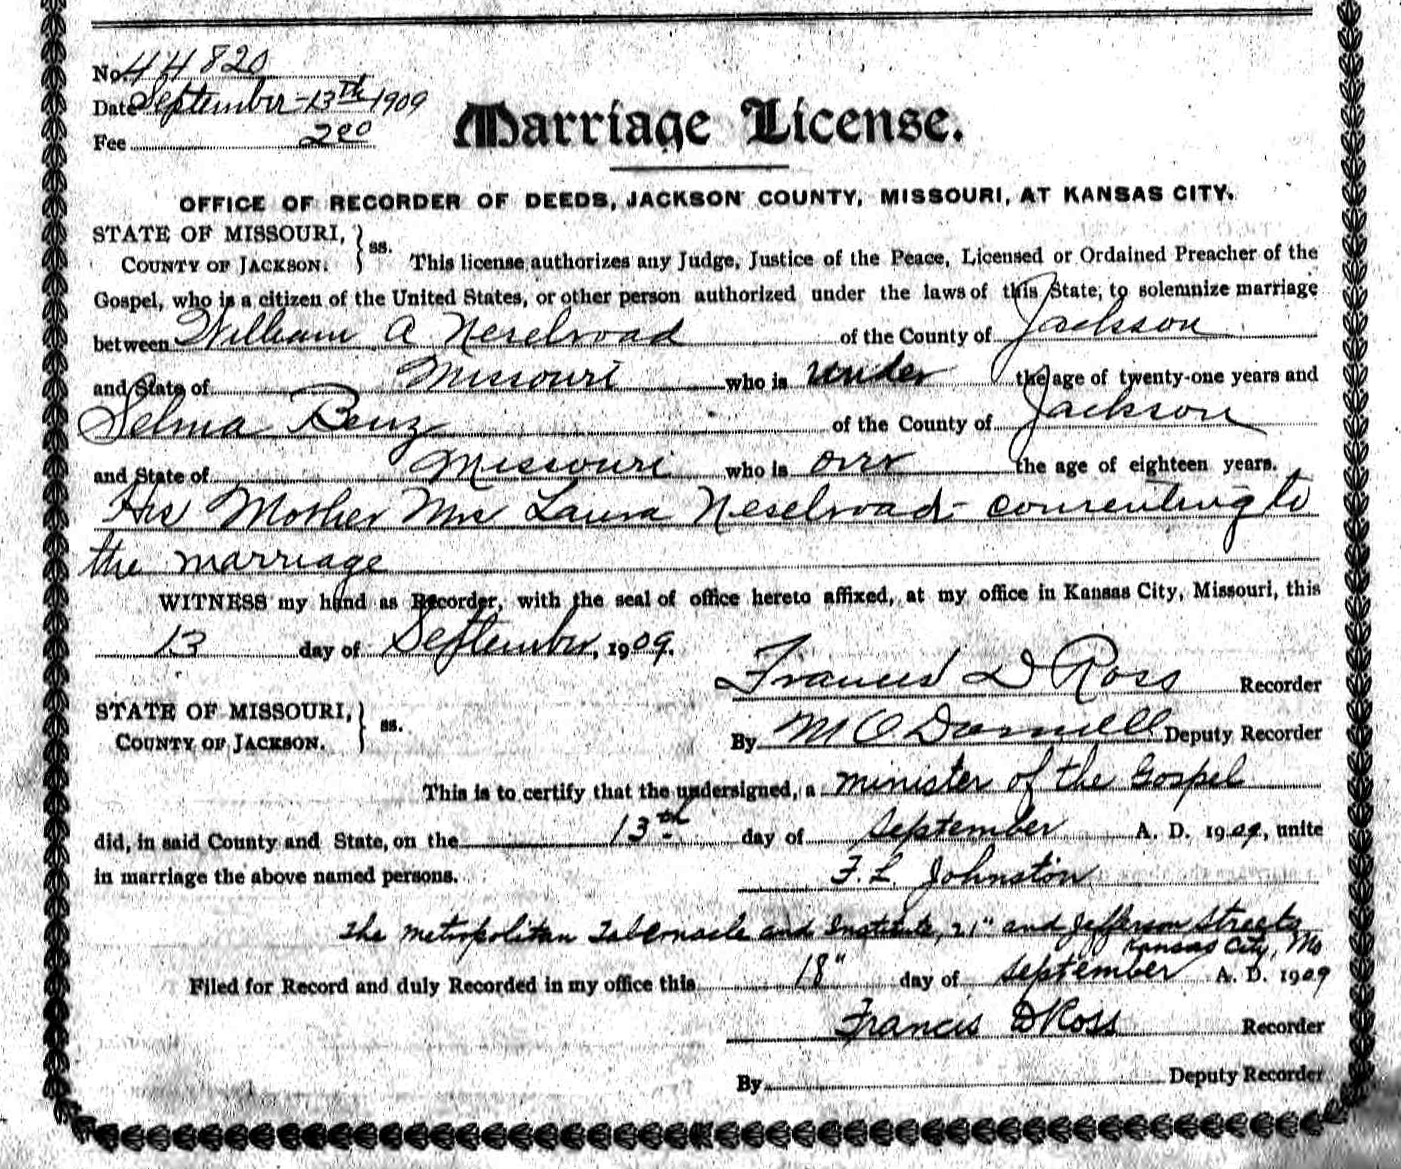 No. 44820
Date September - 13th 1909
Fee 2 00
Marriage License.
OFFICE OF RECORDER OF DEEDS, JACKSON COUNTY, MISSOURI, AT KANSAS CITY.
STATE OF MISSOURI, } ss.
COUNTY OF JACKSON.
This license authorizes any Judge, Justice of the Peace, Licensed or Ordained Preacher of the
Gospel, who is a citizen of the United States, or other person authorized under the laws of this State, to solemnize marriage
between William A Neselroad of the County of Jackson
and State of Missouri who is under the age of twenty-one years and
Selma Benz of the County of Jackson
and State of Missouri who is over the age of eighteen years.
His Mother Mrs Laura Neselroad - consenting to
the marriage
WITNESS my hand as Recorder, with the seal of office hereto affixed, at my office in Kansas City, Missouri, this
13 day of September, 1909.
Francis D Ross Recorder
STATE OF MISSOURI, } ss.
COUNTY OF JACKSON.
By M O Donnell Deputy Recorder
This is to certify that the undersigned, a minister of the Gospel
did, in said County and State, on the 13th day of September A. D. 1909, unite
in marriage the above named persons. F. L. Johnston
The Metropolitan Tabernacle and Institute, 21" and Jefferson Streets
Kansas City, Mo
Filed for Record and duly Recorded in my office this 18" day of September A. D. 1909
Francis D Ross Recorder
By Deputy Recorder